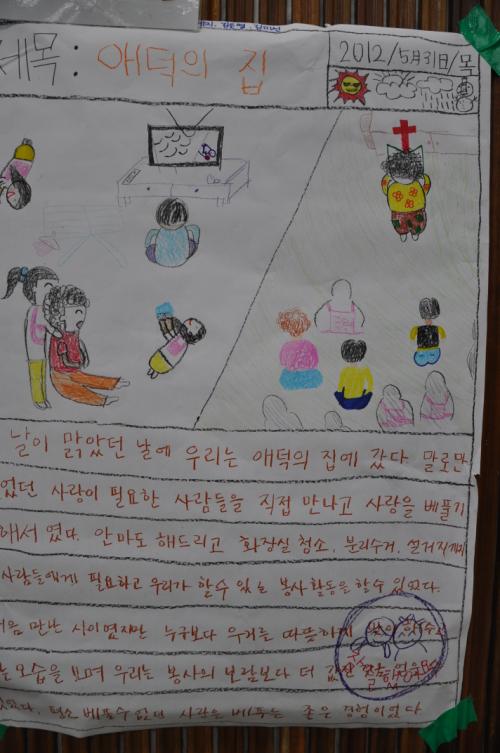 제목: 애덕의 집
2012/5月31日/목
날이 맑았던 날에 우리는 애덕의 집에 갔다 말로만
었던 사랑이 필요한 사람들을 직접 만나고 사랑을 베풀기
해서 였다. 안마도 해드리고 화장실 청소, 분리수거, 설거지까지
사람들에게 필요하고 우리가 할수 있는 봉사활동을 할수 있었다.
처음 만난 사이였지만 누구보다 우리를 따뜻하게
모습을 보며 우리는 봉사의 보람보다 더 값진
평소 베풀수 없던 사랑을 베푸는 좋은 경험이었다